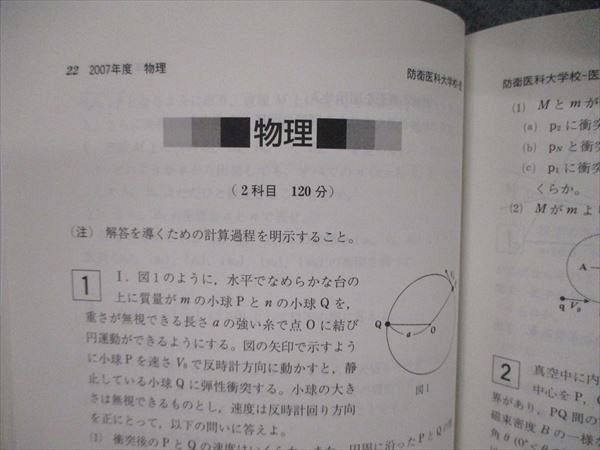 22 2007年度 物理
防衛医科大学校-医
物理
(2科目 120分)
(注) 解答を導くための計算過程を明示すること。
1 I. 図1のように，水平でなめらかな台の
上に質量が m の小球 P と n の小球 Q を，
重さが無視できる長さ a の強い糸で点 O に結び
円運動ができるようにする。図の矢印で示すよう
に小球 P を速さ V₀ で反時計方向に動かすと，静
止している小球 Q に弾性衝突する。小球の大き
さは無視できるものとし，速度は反時計回り方向
を正にとって，以下の問いに答えよ。
(1) 衝突後の P と Q の速度はいくらか。また，円周に沿った P と Q の
Q
a
O
図1
防衛医科大学校-医
(1) M と m が
(a) p₂ に衝突
(b) pN と衝突
(c) p₁ に衝突
くらか。
(2) M が m よ
A
q V₀
2 真空中に内
中心を P，Q
界があり，PQ 間の
磁束密度 B の一様な
角 θ (0°<θ